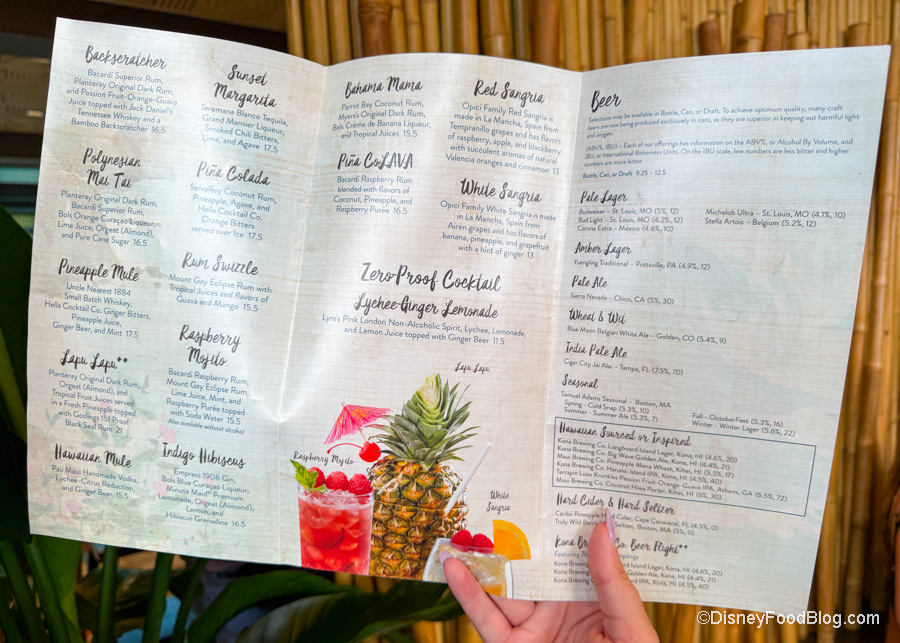 Backscratcher
Bacardi Superior Rum,
Planteray Original Dark Rum,
and Passion Fruit-Orange-Guava
Juice topped with Jack Daniel's
Tennessee Whiskey and a
Bamboo Backscratcher 16.5
Polynesian
Mai Tai
Planteray Original Dark Rum,
Bacardi Superior Rum,
Bols Orange Curaçao Liqueur,
Lime Juice, Orgeat (Almond),
and Pure Cane Sugar 16.5
Pineapple Mule
Uncle Nearest 1884
Small Batch Whiskey,
Hella Cocktail Co. Ginger Bitters,
Pineapple Juice,
Ginger Beer, and Mint 17.5
Lapu Lapu**
Planteray Original Dark Rum,
Orgeat (Almond), and
Tropical Fruit Juices served
in a Fresh Pineapple topped
with Goslings 151 Proof
Black Seal Rum 21
Hawaiian Mule
Pau Maui Handmade Vodka,
Lychee-Citrus Reduction,
and Ginger Beer 15.5
Sunset
Margarita
Teremana Blanco Tequila,
Grand Marnier Liqueur,
Smoked Chili Bitters,
Lime, and Agave 17.5
Piña Colada
SelvaRey Coconut Rum,
Pineapple, Agave, and
Hella Cocktail Co.
Orange Bitters
served over Ice 17.5
Rum Swizzle
Mount Gay Eclipse Rum with
Tropical Juices and flavors of
Guava and Mango 15.5
Raspberry
Mojito
Bacardi Raspberry Rum,
Mount Gay Eclipse Rum,
Lime Juice, Mint, and
Raspberry Purée topped
with Soda Water 15.5
Also available without alcohol
Indigo Hibiscus
Empress 1908 Gin,
Bols Blue Curaçao Liqueur,
Minute Maid® Premium
Lemonade, Orgeat (Almond),
Lemon, and
Hibiscus Grenadine 16.5
Bahama Mama
Parrot Bay Coconut Rum,
Myers's Original Dark Rum,
Bols Crème de Banana Liqueur,
and Tropical Juices 15.5
Piña CoLAVA
Bacardi Raspberry Rum
blended with flavors of
Coconut, Pineapple, and
Raspberry Purée 16.5
Red Sangria
Opici Family Red Sangria is
made in La Mancha, Spain from
Tempranillo grapes and has flavors
of raspberry, apple, and blackberry
with succulent aromas of natural
Valencia oranges and cinnamon 13
White Sangria
Opici Family White Sangria is made
in La Mancha, Spain from
Airén grapes and has flavors of
banana, pineapple, and grapefruit
with a hint of ginger 13
Zero-Proof Cocktail
Lychee-Ginger Lemonade
Lyre's Pink London Non-Alcoholic Spirit, Lychee, Lemonade,
and Lemon Juice topped with Ginger Beer 11.5
Lapu Lapu
Raspberry Mojito
White
Sangria
Beer
Selections may be available in Bottle, Can, or Draft. To achieve optimum quality, many craft
beers are now being produced exclusively in cans, as they are superior in keeping out harmful light
and oxygen.
(ABV%, IBU) – Each of our offerings has information on the ABV%, or Alcohol By Volume, and
IBU, or International Bitterness Units. On the IBU scale, low numbers are less bitter and higher
numbers are more bitter.
Bottle, Can, or Draft 9.25 - 12.5
Pale Lager
Budweiser – St. Louis, MO (5%, 12)
Bud Light – St. Louis, MO (4.2%, 12)
Corona Extra – Mexico (4.6%, 10)
Michelob Ultra – St. Louis, MO (4.1%, 10)
Stella Artois – Belgium (5.2%, 12)
Amber Lager
Yuengling Traditional – Pottsville, PA (4.9%, 12)
Pale Ale
Sierra Nevada – Chico, CA (5%, 30)
Wheat & Wit
Blue Moon Belgian White Ale – Golden, CO (5.4%, 9)
India Pale Ale
Cigar City Jai Alai – Tampa, FL (7.5%, 70)
Seasonal
Samuel Adams Seasonal – Boston, MA
Spring - Cold Snap (5.3%, 10)
Summer - Summer Ale (5.3%, 7)
Fall - OctoberFest (5.3%, 16)
Winter - Winter Lager (5.6%, 22)
Hawaiian Sourced or Inspired
Kona Brewing Co. Longboard Island Lager, Kona, HI (4.6%, 20)
Kona Brewing Co. Big Wave Golden Ale, Kona, HI (4.4%, 21)
Maui Brewing Co. Pineapple Mana Wheat, Kihei, HI (5.5%)
Kona Brewing Co. Hanalei Island IPA, Kona, HI (4.5%, 40)
Terrapin Luau Krunkles Passion Fruit-Orange-Guava IPA, Athens, GA (6.5%, 72)
Maui Brewing Co. Coconut Hiwa Porter, Kihei, HI (6%, 30)
Hard Cider & Hard Seltzer
Caribé Pineapple Cider, Cape Canaveral, FL (4.5%, 0)
Truly Wild Seltzer, Boston, MA (5%, 0)
Kona Co. Beer Flight**
Featuring
Kona Brewing Island Lager, Kona, HI (4.6%, 20)
Kona Brewing Golden Ale, Kona, HI (4.4%, 21)
Kona Brewing IPA, Kona, HI (4.5%, 40)
©DisneyFoodBlog.com